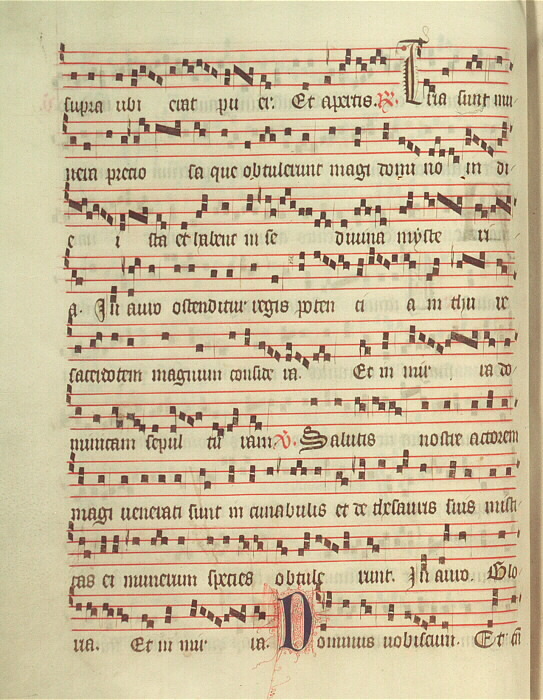 supra ubi erat pu er. Et apertis. R. Tria sunt mu
nera precio sa que obtulerunt magi domino in di
e i sta et habent in se divina myste ri
a. In auro ostenditur regis poten ci a in thu re
sacerdotem magnum conside ra. Et in mir ra do
minicam sepul tu ram. V. Salutis nostre actorem
magi venerati sunt in cunabulis et de thesauris suis misti
cas ei munerum species obtule runt. In auro. Glo
ria. Et in mir ra. Dominus vobiscum. Et cum